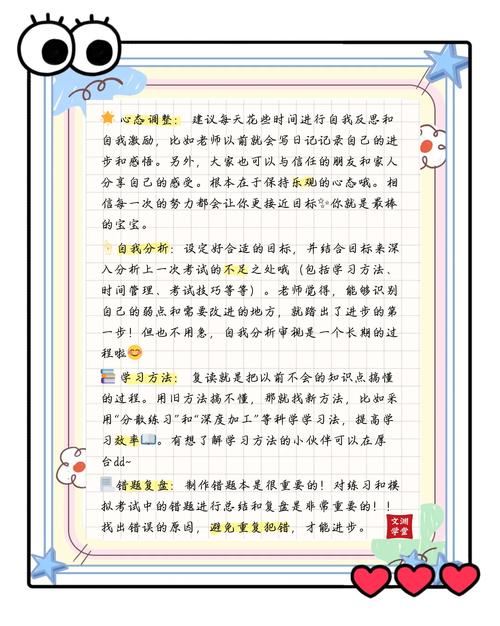 心态调整： 建议每天花些时间进行自我反思和
自我激励，比如老师以前就会写日记记录自己的进
步和感悟。另外，大家也可以与信任的朋友和家人
分享自己的感受。根本在于保持乐观的心态哦。相
信每一次的努力都会让你更接近目标✨你就是最棒
的宝宝。
自我分析： 设定好合适的目标，并结合目标来深
入分析上一次考试的不足之处哦（包括学习方法、
时间管理、考试技巧等等）。老师觉得，能够识别
自己的弱点和需要改进的地方，就踏出了进步的第
一步！但也不用急，自我分析审视是一个长期的过
程啦😊
📚学习方法： 复读就是把以前不会的知识点搞懂
的过程。用旧方法搞不懂，那就找新方法，比如采
用“分散练习”和“深度加工”等科学学习法，提高学
习效率📖。有想了解学习方法的小伙伴可以在厚
台dd~
错题复盘： 制作错题本是很重要的！对练习和模
拟考试中的错题进行总结和复盘是非常重要的！！
找出错误的原因，避免重复犯错，才能进步。
文渊
学堂